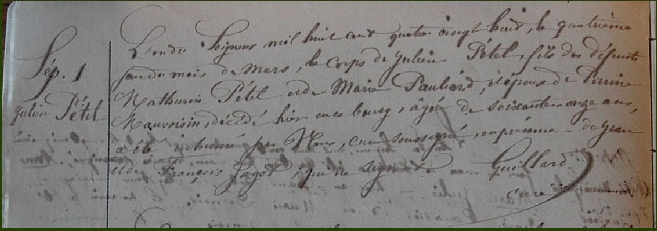 Sép. 1
Julien Pétel
L'an du Seigneur mil huit cent quatre vingt huit, le quatrième
jour du mois de Mars, le corps de Julien Pétel, fils des défunts
Mathurin Pétel et de Marie Paubard, époux de Perrine
Mauvoisin, décédé hier en ce bourg, âgé de soixante onze ans,
a été inhumé par Nous, curé soussigné, en présence de Jean
et de François Jagot, qui ne signent.
Guillard
curé